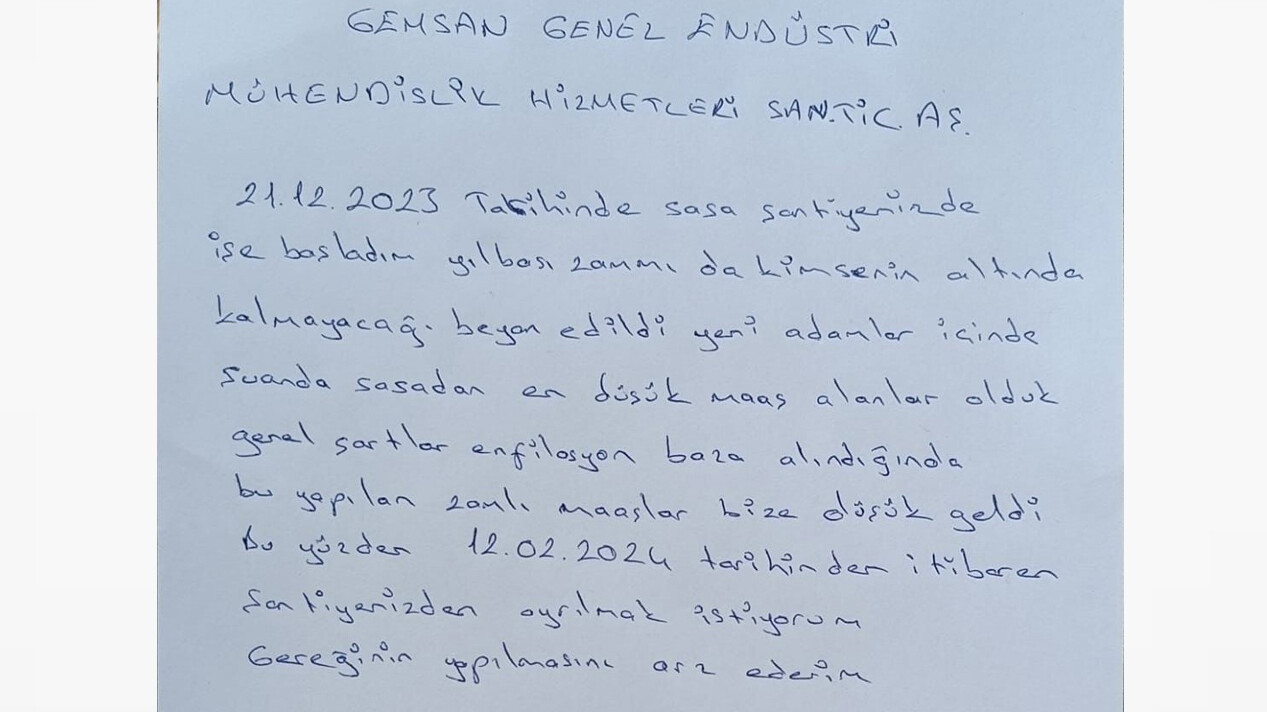 GEMSAN GENEL ENDÜSTRİ
MÜHENDİSLİK HİZMETLERİ SAN.TİC. AŞ.
21.12.2023 Tarihinde sasa şantiyenizde
işe başladım yılbaşı zammı da kimsenin altında
kalmayacağı beyan edildi yeni adamlar içinde
şuanda sasadan en düşük maaş alanlar olduk
genel şartlar enfilasyon baza alındığında
bu yapılan zamlı maaşlar bize düşük geldi
bu yüzden 12.02.2024 tarihinden itibaren
şantiyenizden ayrılmak istiyorum
Gereğinin yapılmasını arz ederim